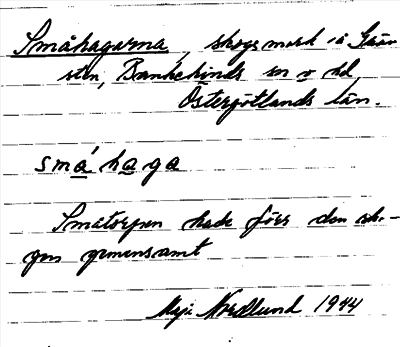 Småhagarna, skogsmark i Gään
sten, Bankekinds sn o hd,
Östergötlands län.
småʹ haga
Småtorpen hade förr den sko-
gen gemensamt
Maja Nordlund 1944